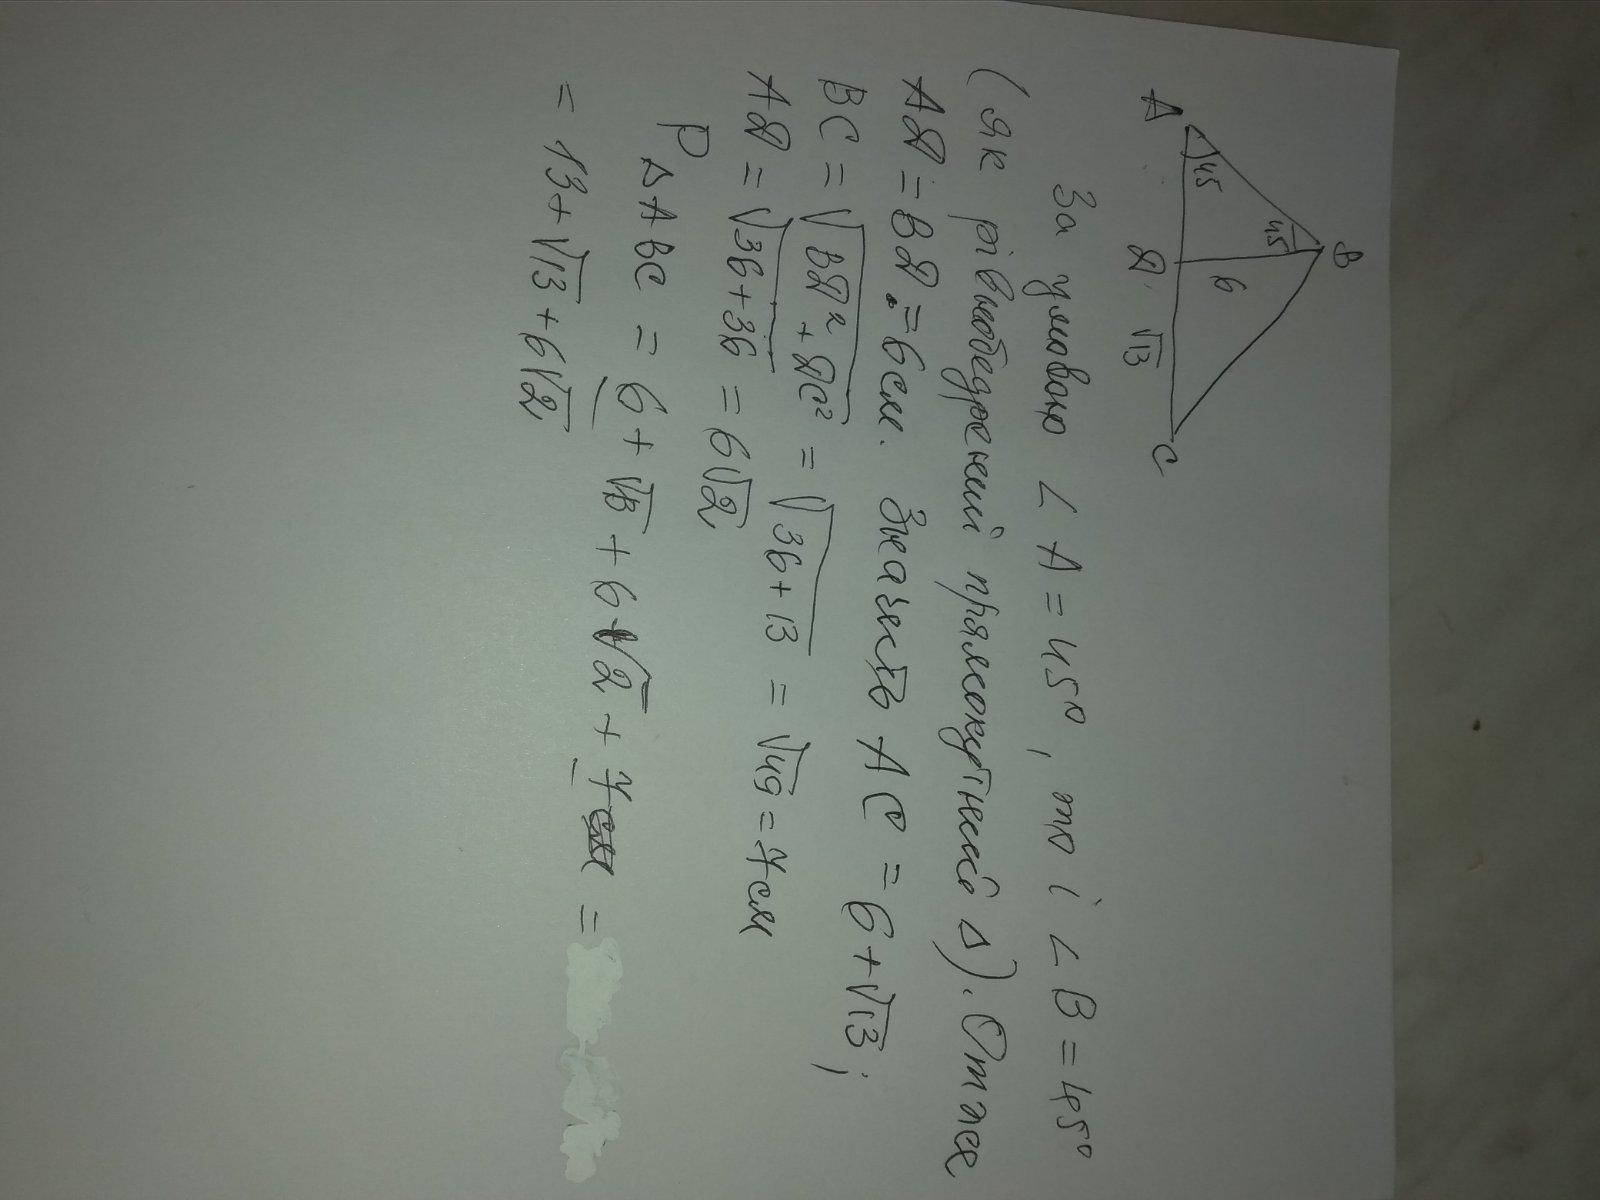 B
A
45
45
6
D
√13
C
За умовою ∠ A = 45°, то і ∠ B = 45°
(як рівнобедрений прямокутний Δ). Отже
AD = BD = 6 см. Значить AC = 6 + √13;
BC = √BD² + DC² = √36 + 13 = √49 = 7 см
AD = √36 + 36 = 6√2
P Δ ABC = 6 + √13 + 6√2 + 7 =
= 13 + √13 + 6√2